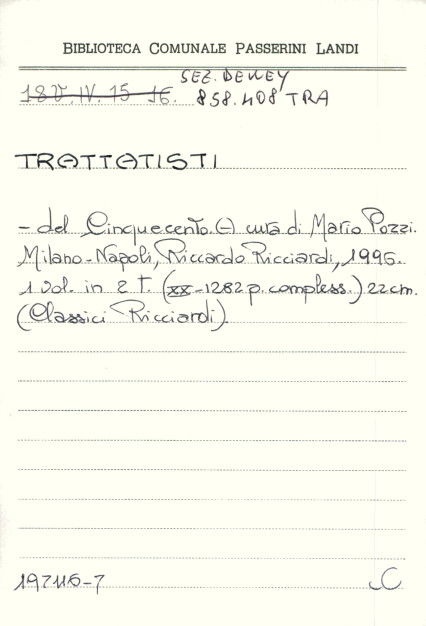 BIBLIOTECA COMUNALE PASSERINI LANDI
SEZ. DEWEY
18V.IV.15 16. 858.408 TRA
TRATTATISTI
- del Cinquecento. (-) cura di Mario Pozzi.
Milano-Napoli, Riccardo Ricciardi, 1996.
1 vol. in 2 t. (XX-1282 p. compless.) 22 cm.
(Classici Ricciardi).
197116-7